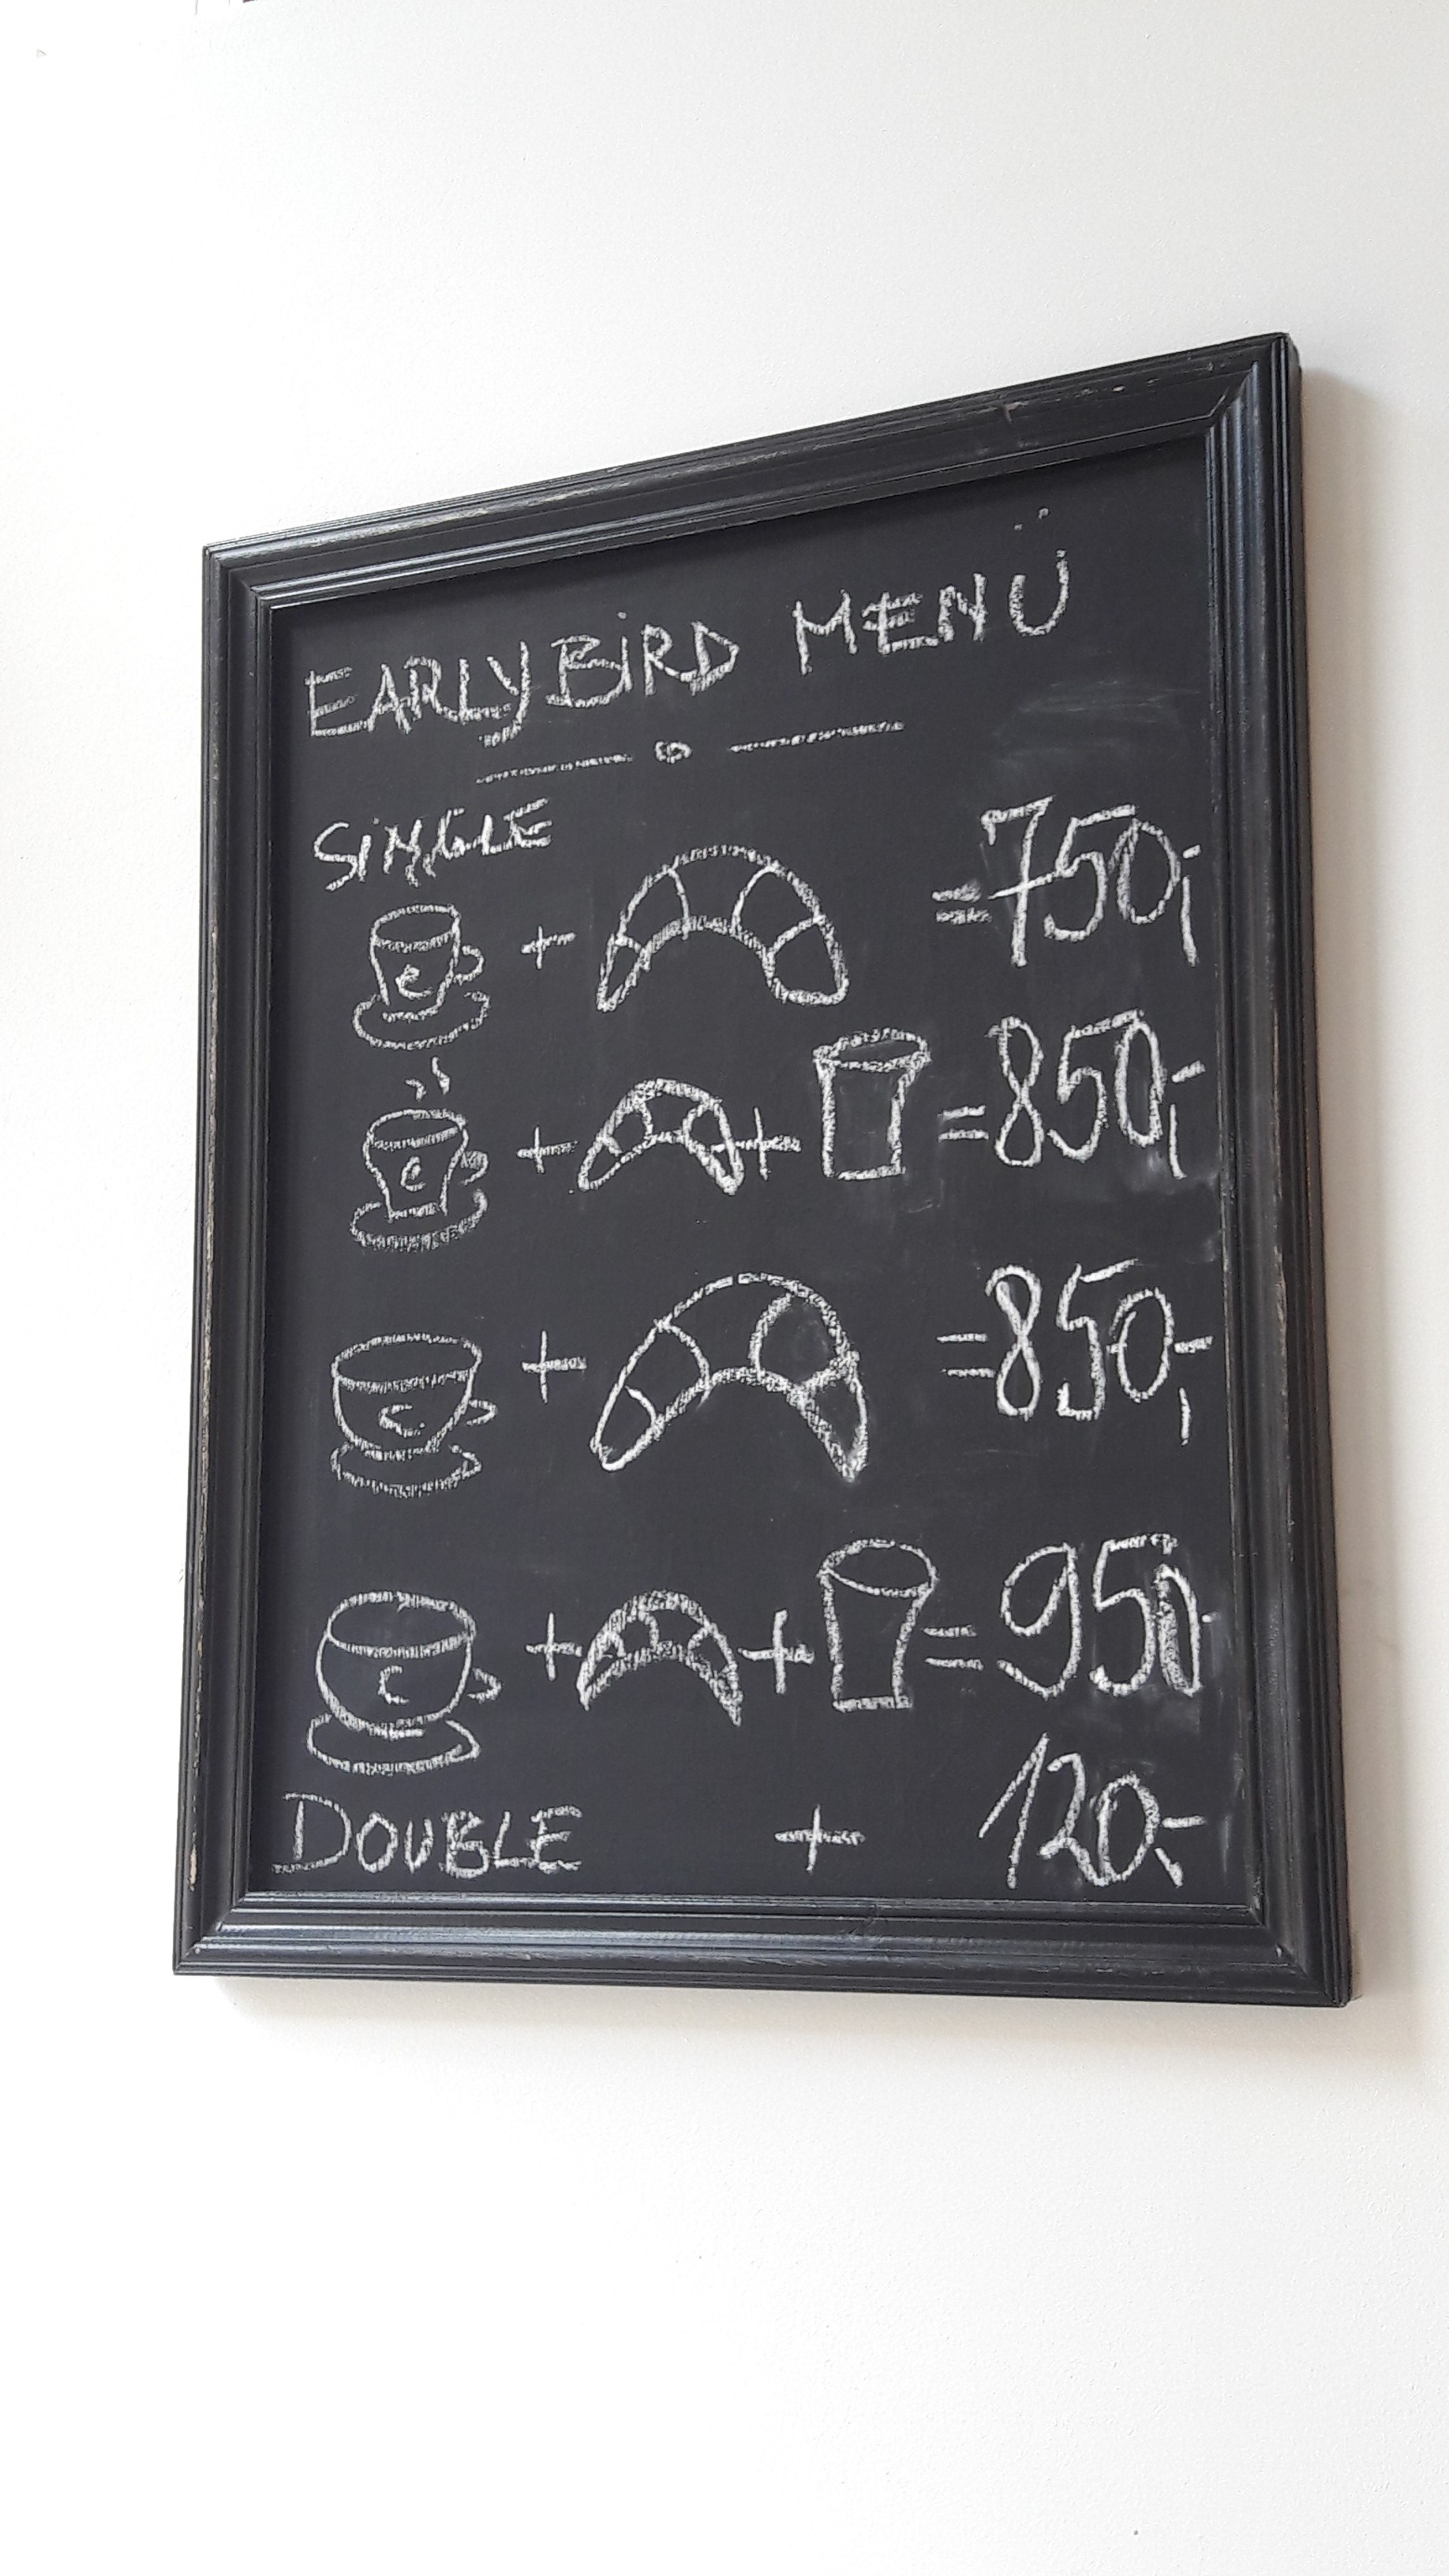 EARLY BiRD MENÜ
SiNGLE
e + = 750,-
e + + = 850,-
C + = 850,-
C + + = 950
DOUBLE + 120,-